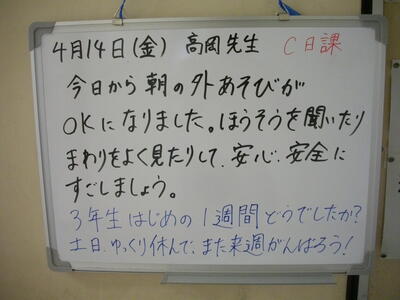 4月14日(金) 高岡先生 C日課
今日から朝の外あそびが
OKになりました。ほうそうを聞いたり
まわりをよく見たりして、安心、安全に
すごしましょう。
3年生はじめの1週間どうでしたか?
土日、ゆっくり休んで、また来週がんばろう!